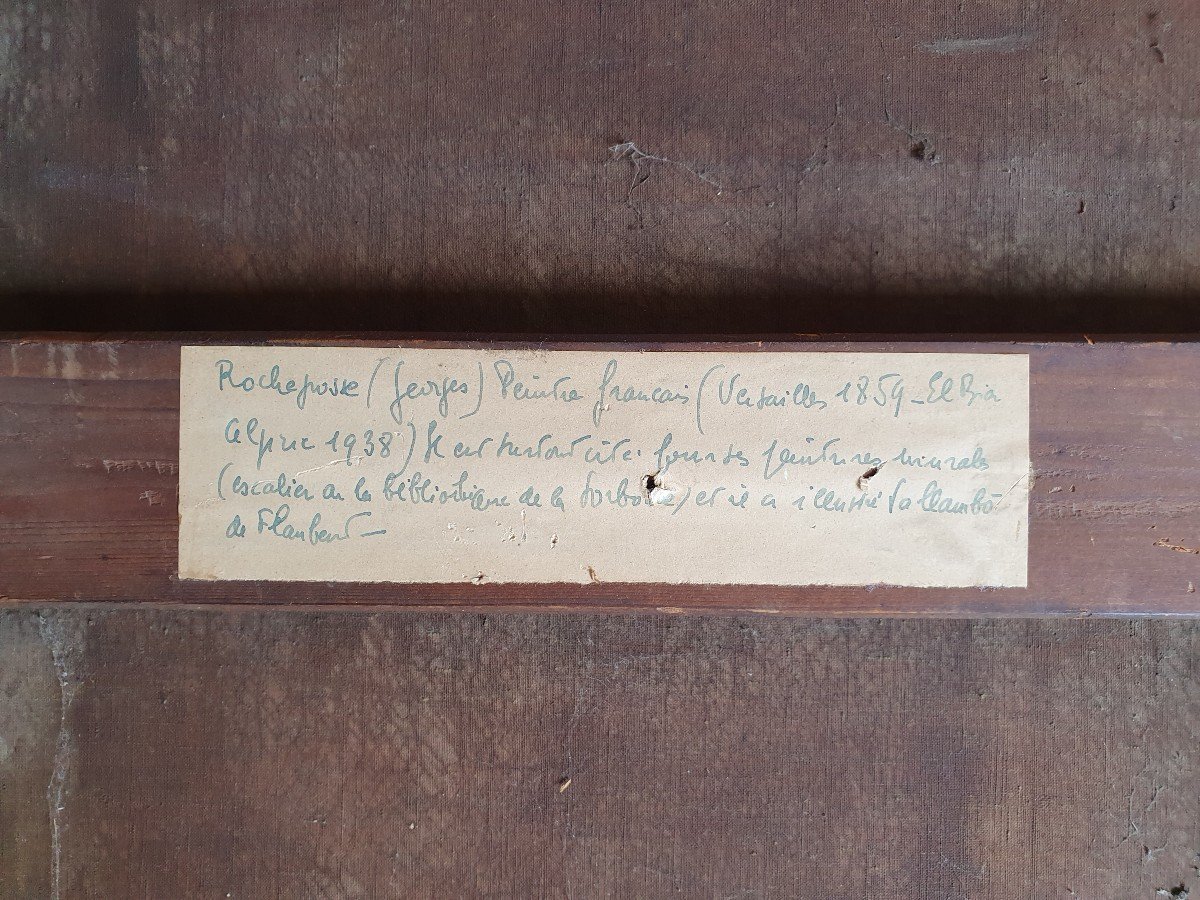 Rochegrosse (Georges) Peintre français (Versailles 1859_El Biar
Algérie 1938) Il est surtout cité pour ses peintures murales
(escalier de la bibliothèque de la Sorbonne) et il a illustré Salambô
de Flaubert_